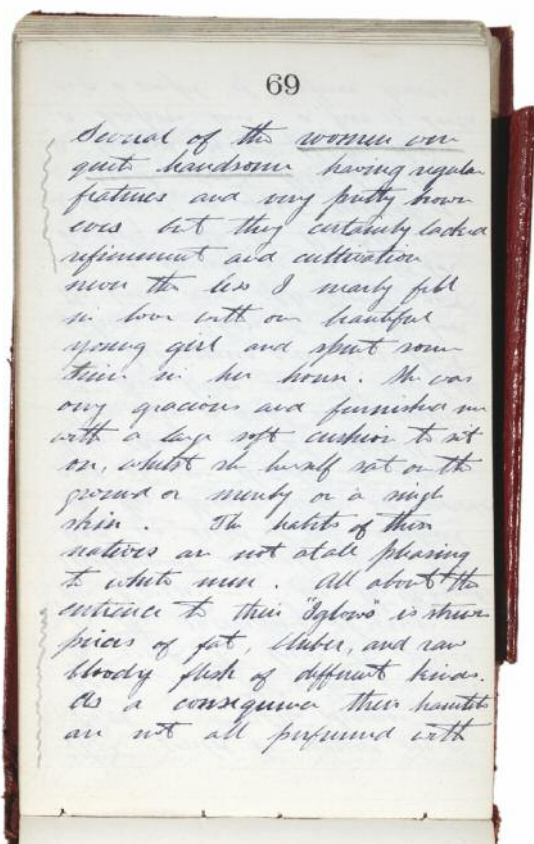 69
Several of the women were
quite handsome having regular
features and very pretty brown
eves but they certainly lacked
refinement and cultivation
never the less I nearly fell
in love with one beautiful
young girl and spent some
time in her house. She was
very gracious and furnished me
with a large soft cushion to sit
on, whilst she herself sat on the
ground or merely on a single
skin. The habits of these
natives are not atall pleasing
to white men. All about the
entrance to their "Iglows" is strewn
pieces of fat, bluber, and raw
bloody flesh of different kinds.
As a consequence their
are not all perfumed with